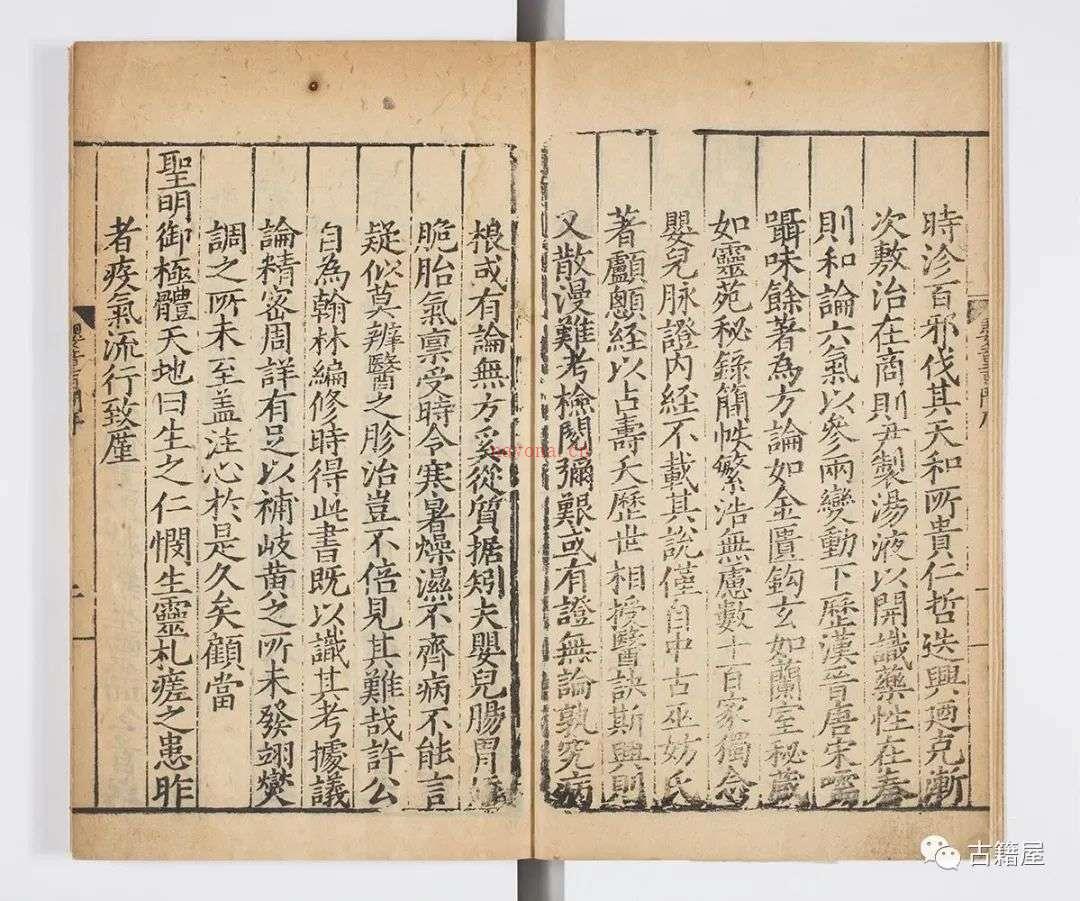 時沴百邪伐其天和所貴仁哲迭興廼克漸
次敷治在商則尹製湯液以開識藥性在春
則和論六氣以參兩變動下歷漢晉唐宋嚅
躡味餘著為方論如金匱鈎玄如蘭室秘藏
如靈苑秘錄簡帙繁浩無慮數十百家獨念
嬰兒脉證內經不載其說僅自中古巫妨氏
著顱顖經以占壽夭歷世相授醫訣斯興則
又散漫難考檢閱彌艱或有證無論孰究病
根或有論無方奚從質据矧夫嬰兒腸胃
脆胎氣禀受時令寒暑燥濕不齊病不能言
疑似莫辨醫之胗治豈不倍見其難哉許公
自為翰林編修時得此書既以識其考據議
論精密周詳有足以補岐黃之所未發翊爕
調之所未至盖注心於是久矣顧當
聖明御極體天地曰生之仁憫生靈札瘥之患昨
者疾氣流行致廑
古籍屋